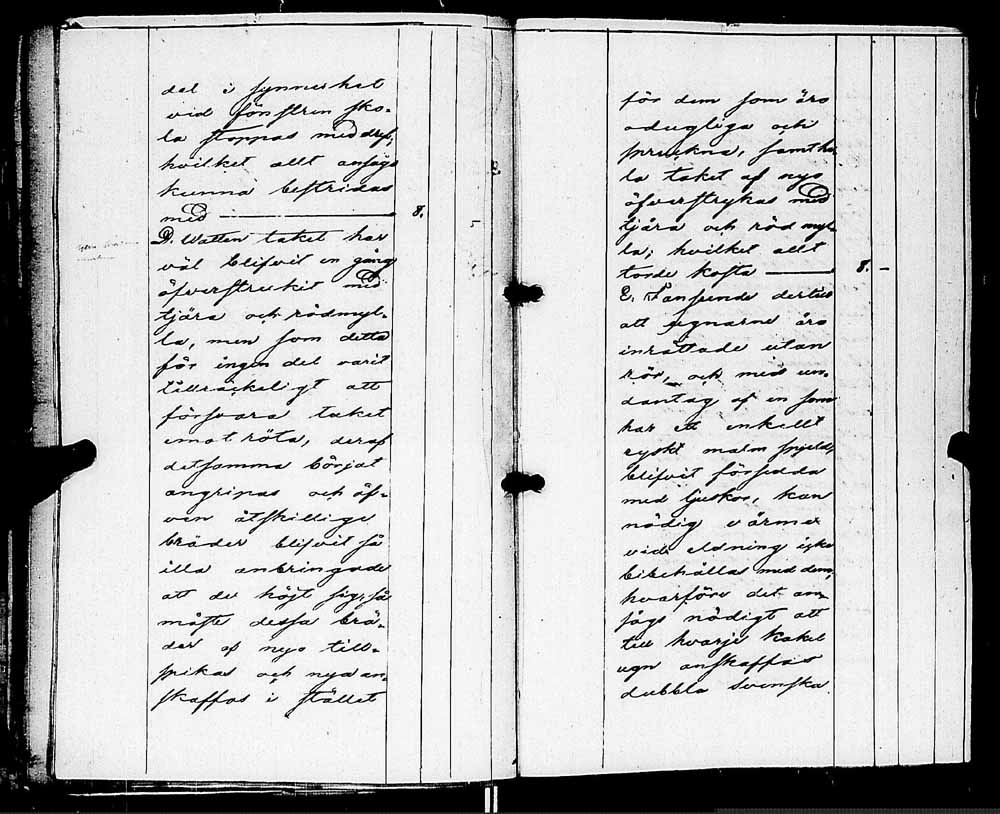 del i synnerhet
vid fönstren sko-
la stoppas med dref,
hvilket allt ansågs
kunna bestridas
med — 8.
D. Watten taket har
väl blifvit en gång
öfverstruckit med
tjära och rödmyl-
la, men som detta
för ingen del varit
tillräckeligt att
försvara taket
emot röta, deraf
detsamma börjat
angripas och äf-
ven åtskillige
bräder blifvit så
illa anbringade
att de höjt sig, så
måste dessa brä-
der af nyo till-
spikas och nya an-
skaffas i stället
för dem som äro
odugliga och
spruckna, samt he-
la taket af nyo
öfverstrykas med
tjära och röd myl-
la; hvilket allt
torde kosta — 8. -
E. Fanns ende dertill
att ugnarne äro
inrättade utan
rör, och med un-
dantag af en som
har ett enkelt
ryskt malm spjeld,
blifvit försedda
med ljuskor, kan
nödig värme
vid eldning icke
bibehållas med dem,
hvarföre det an-
sågs nödigt att
till hvarje kakel
ugn anskaffas
dubbla Svenska